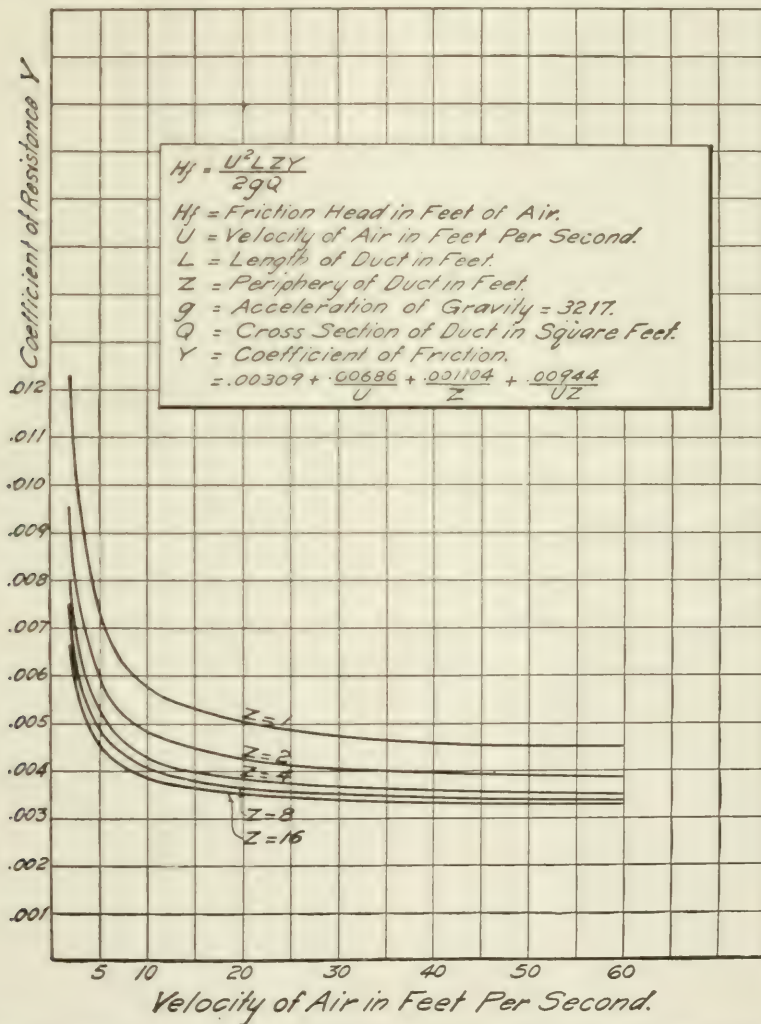 Coefficient of Resistance Y
Hf = U²LZY / 2gQ
Hf = Friction Head in Feet of Air.
U = Velocity of Air in Feet Per Second.
L = Length of Duct in Feet.
Z = Periphery of Duct in Feet.
g = Acceleration of Gravity = 3217.
Q = Cross Section of Duct in Square Feet.
Y = Coefficient of Friction.
= .00309 + .00686/U + .001104/Z + .00944/UZ
.012
.011
.010
.009
.008
.007
.006
.005
.004
.003
.002
.001
Z=1
Z=2
Z=4
Z=8
Z=16
5 10 20 30 40 50 60
Velocity of Air in Feet Per Second.